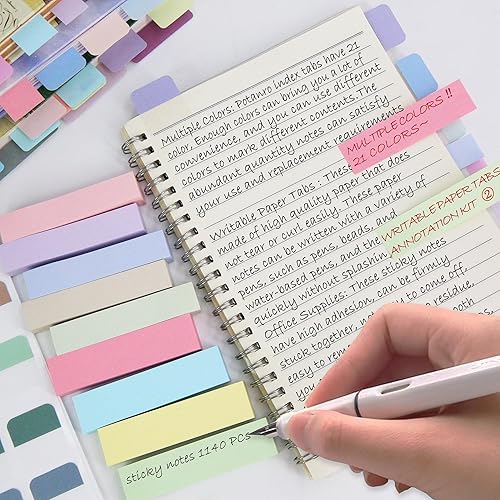 Multiple Colors: Potanro index tabs have 21
color. Enough colors can bring you a lot of
convenience, and you can use different
colors to mark different contents. The
abundant quantity notes can satisfy
your use and replacement requirements
MULTIPLE COLORS !!
21 COLORS~
Writable Paper Tabs : These
made of high quality paper that does
not tear or curl easily. These paper
notes can be written with a variety of
pens, such as pens, beads, and
water-based pens, and the
quickly without splashin
WRITABLE PAPER TABS
ANNOTATION KIT ②
Office Supplies: These sticky notes
have high adhesion, can be firmly
stuck together, not easy to come off,
easy to rem residue,
you mooth
sticky notes 1140 PCs